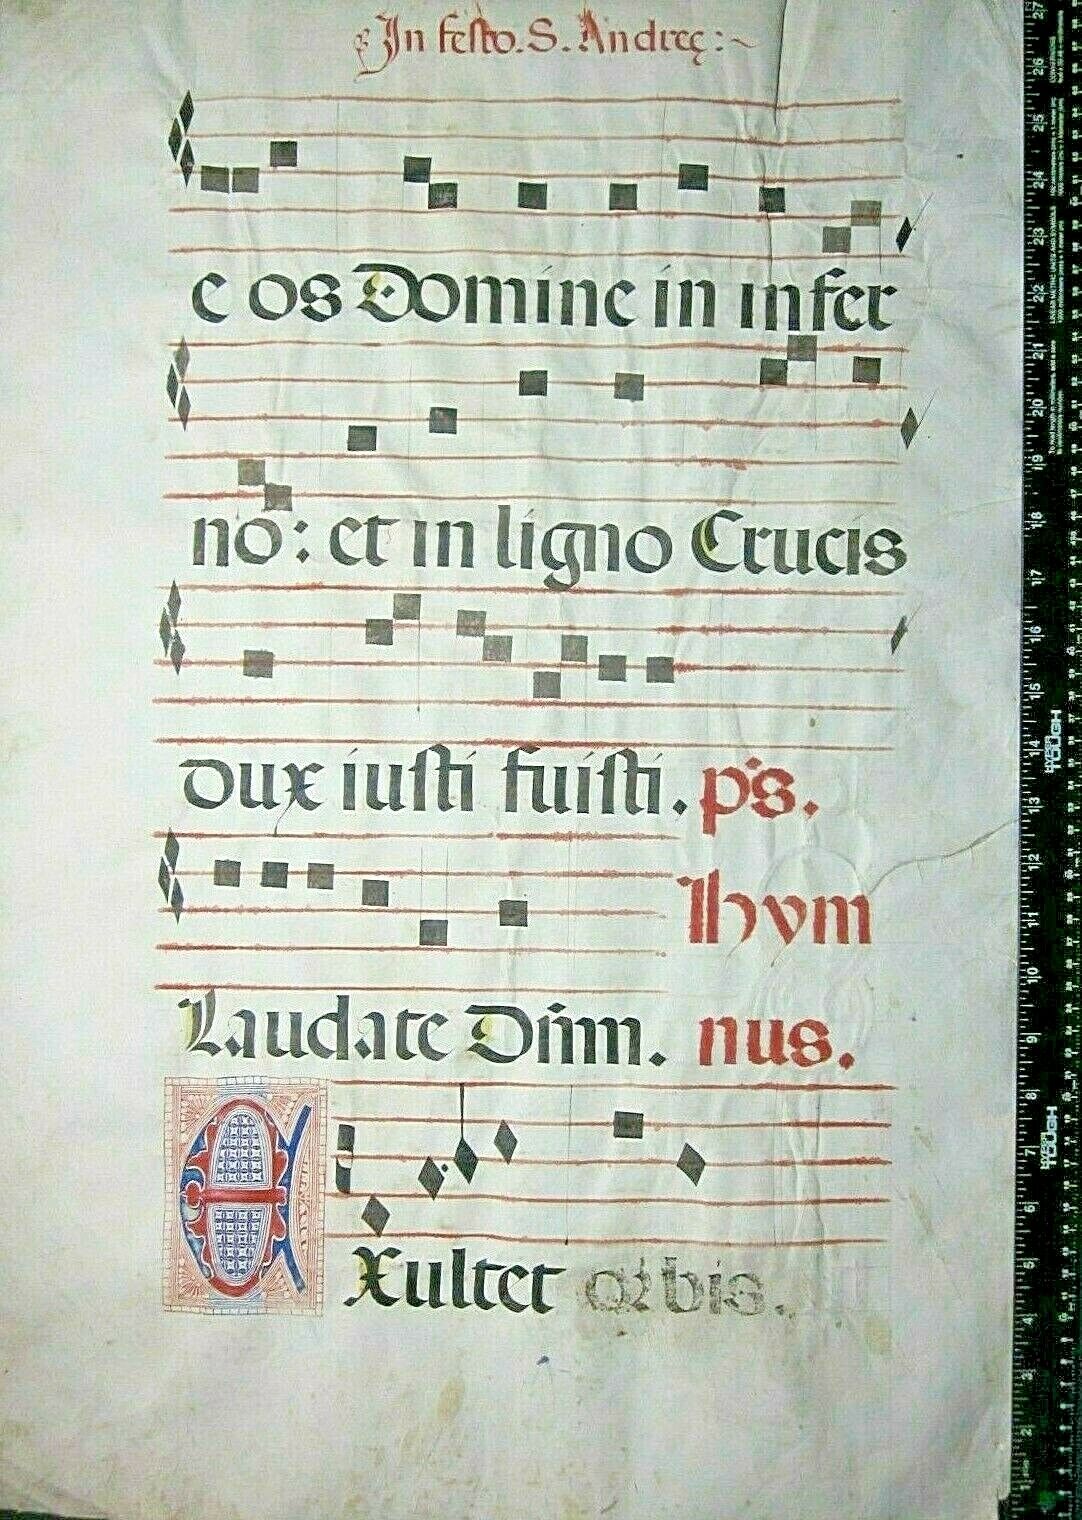 In festo. S. Andreę:~
e os Domine in infer
no: et in ligno Crucis
dux iusti fuisti. ps.
Laudate Dñm. Ihym
nus.
Exultet orbis.